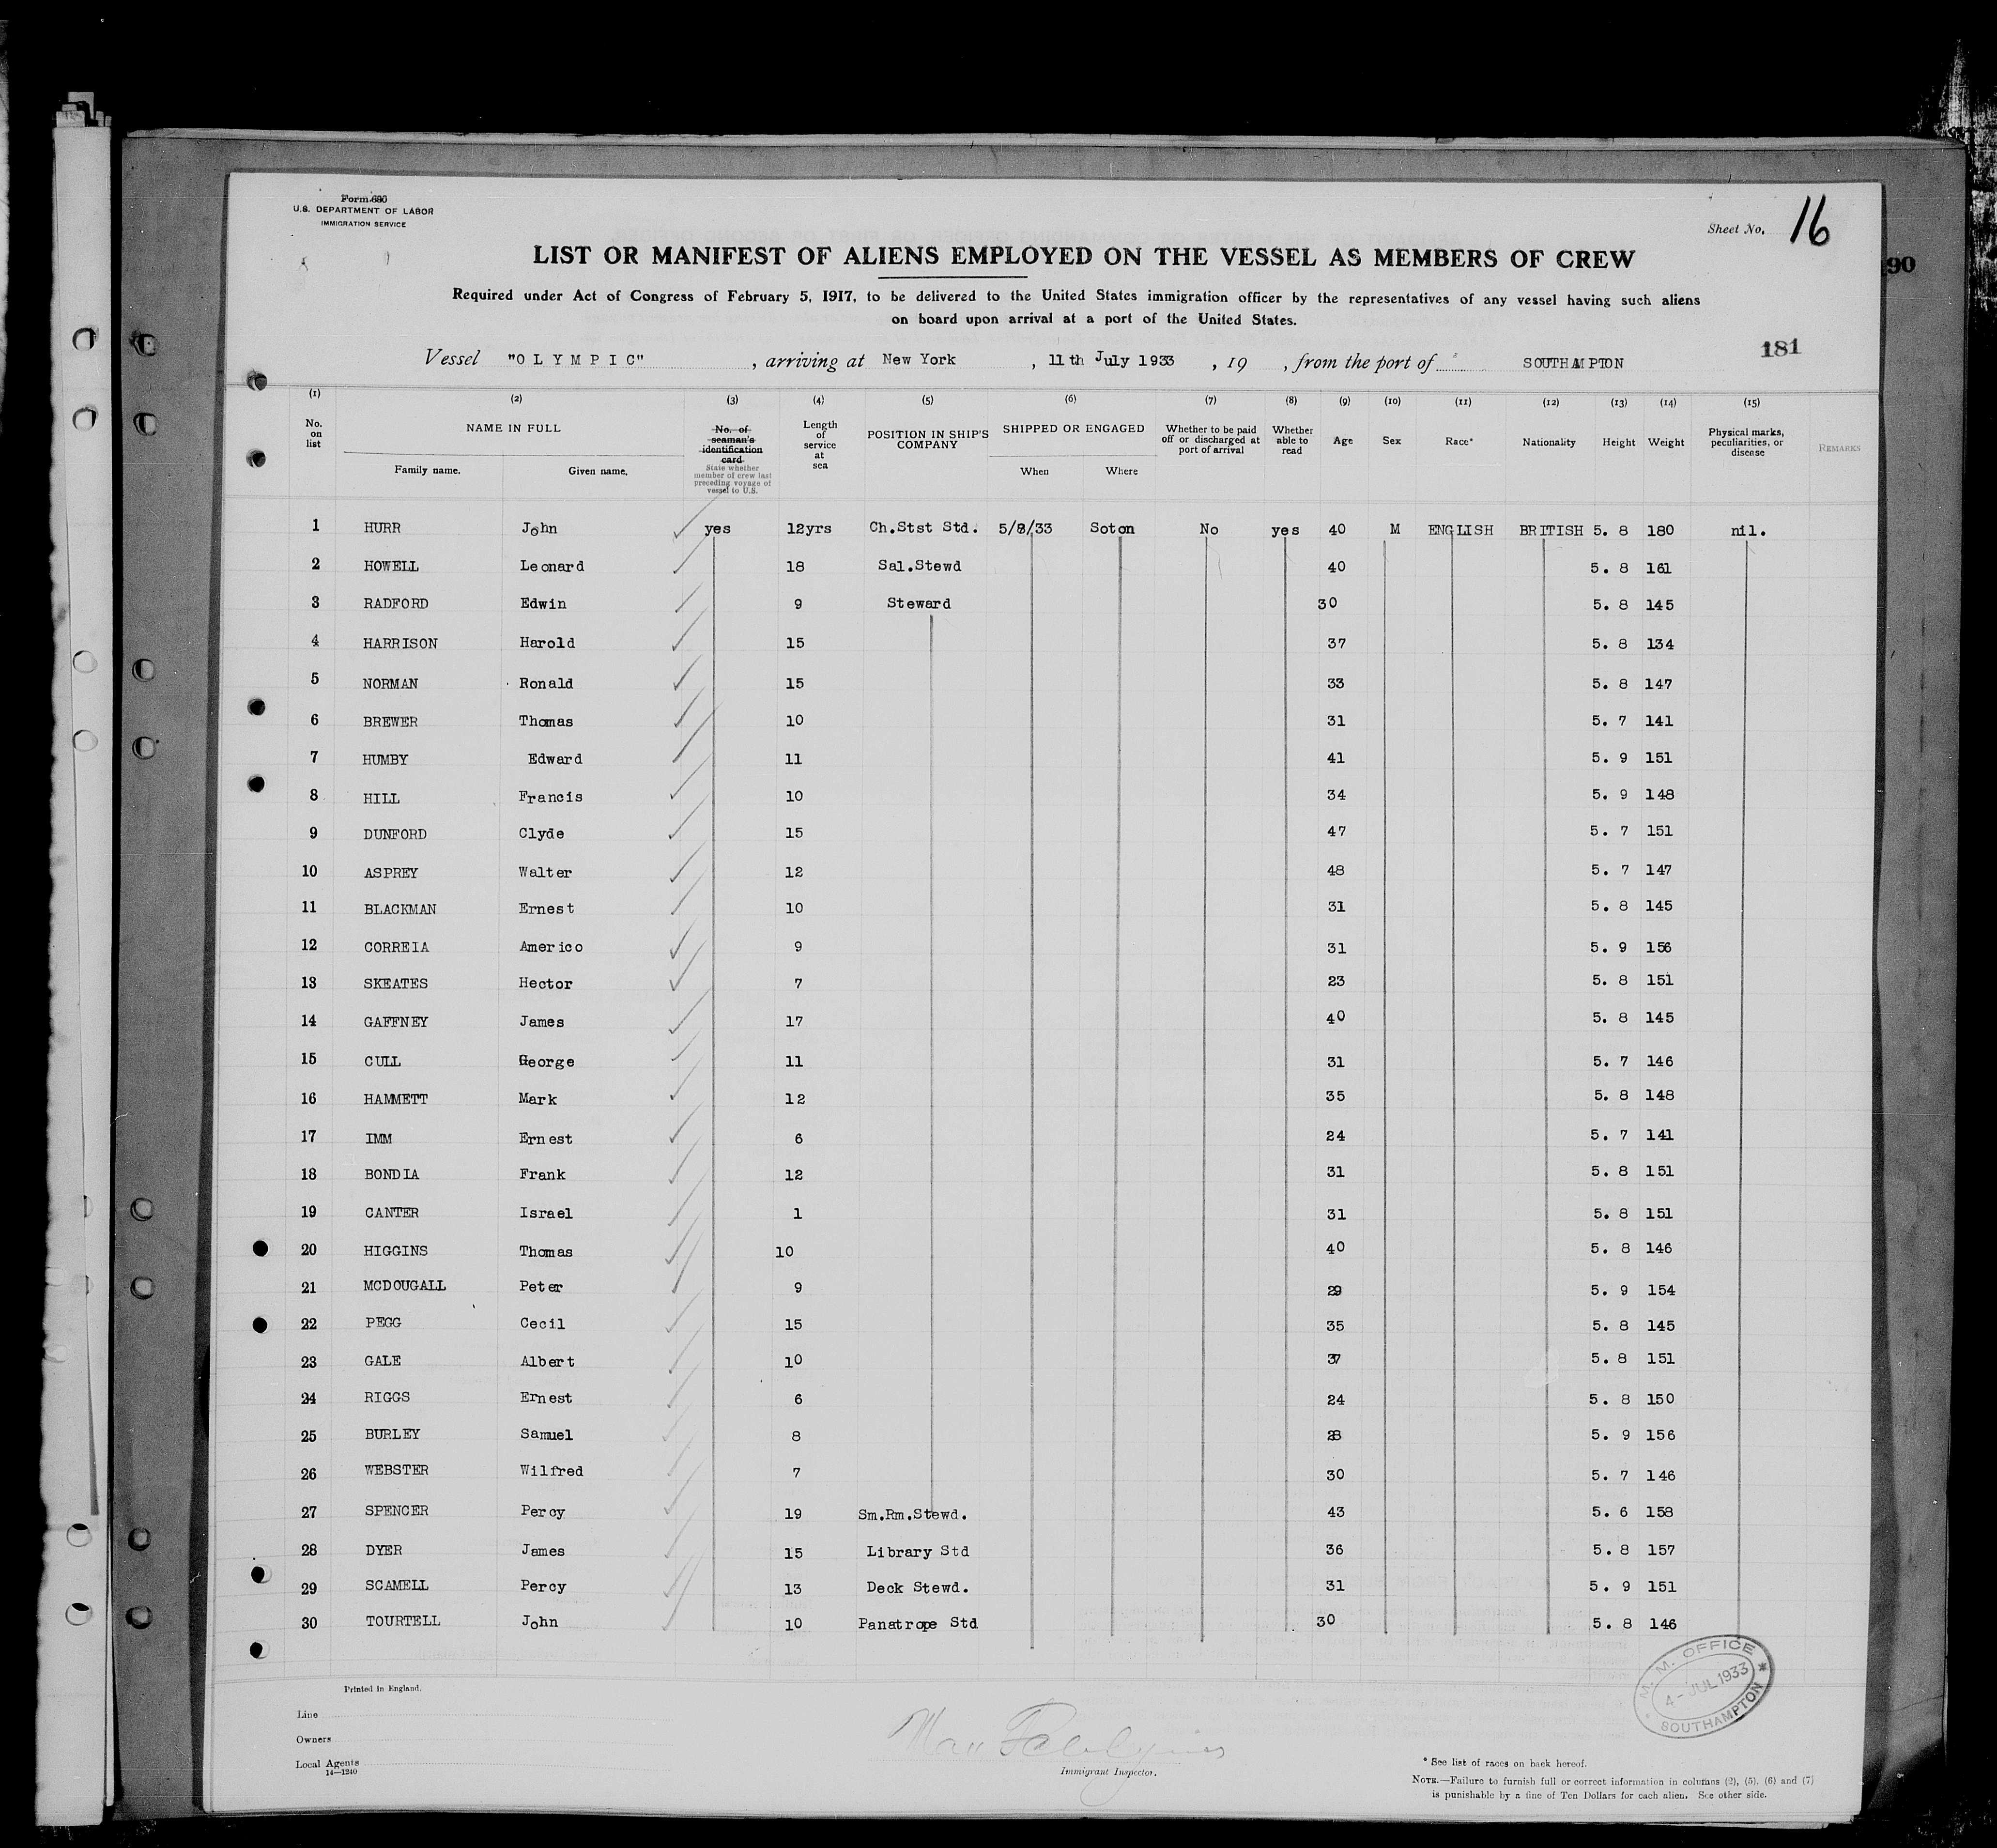 Form 680
U.S. DEPARTMENT OF LABOR
IMMIGRATION SERVICE
Sheet No. 16
90
LIST OR MANIFEST OF ALIENS EMPLOYED ON THE VESSEL AS MEMBERS OF CREW
Required under Act of Congress of February 5, 1917, to be delivered to the United States immigration officer by the representatives of any vessel having such aliens
on board upon arrival at a port of the United States.
181
Vessel "OLYMPIC", arriving at New York, 11th July 1933, 19, from the port of SOUTHAMPTON
(1) (2) (3) (4) (5) (6) (7) (8) (9) (10) (11) (12) (13) (14) (15)
No. on list NAME IN FULL Family name. Given name. No. of seaman's identification card State whether member of crew last preceding voyage of vessel to U.S. Length of service at sea POSITION IN SHIP'S COMPANY SHIPPED OR ENGAGED When Where Whether to be paid off or discharged at port of arrival Whether able to read Age Sex Race* Nationality Height Weight Physical marks, peculiarities, or disease REMARKS
1 HURR John yes 12yrs Ch.Stst Std. 5/8/33 Soton No yes 40 M ENGLISH BRITISH 5. 8 180 nil.
2 HOWELL Leonard 18 Sal.Stewd 40 5. 8 161
3 RADFORD Edwin 9 Steward 30 5. 8 145
4 HARRISON Harold 15 37 5. 8 134
5 NORMAN Ronald 15 33 5. 8 147
6 BREWER Thomas 10 31 5. 7 141
7 HUMBY Edward 11 41 5. 9 151
8 HILL Francis 10 34 5. 9 148
9 DUNFORD Clyde 15 47 5. 7 151
10 ASPREY Walter 12 48 5. 7 147
11 BLACKMAN Ernest 10 31 5. 8 145
12 CORREIA Americo 9 31 5. 9 156
13 SKEATES Hector 7 23 5. 8 151
14 GAFFNEY James 17 40 5. 8 145
15 CULL George 11 31 5. 7 146
16 HAMMETT Mark 12 35 5. 8 148
17 IMM Ernest 6 24 5. 7 141
18 BONDIA Frank 12 31 5. 8 151
19 CANTER Israel 1 31 5. 8 151
20 HIGGINS Thomas 10 40 5. 8 146
21 MCDOUGALL Peter 9 29 5. 9 154
22 PEGG Cecil 15 35 5. 8 145
23 GALE Albert 10 37 5. 8 151
24 RIGGS Ernest 6 24 5. 8 150
25 BURLEY Samuel 8 28 5. 9 156
26 WEBSTER Wilfred 7 30 5. 7 146
27 SPENCER Percy 19 Sm.Rm.Stewd. 43 5. 6 158
28 DYER James 15 Library Std 36 5. 8 157
29 SCAMELL Percy 13 Deck Stewd. 31 5. 9 151
30 TOURTELL John 10 Panatrope Std 30 5. 8 146
M. M. OFFICE
4-JUL 1933
SOUTHAMPTON
Printed in England.
Line
Owners
Local Agents
14—1240
Immigrant Inspector.
* See list of races on back hereof.
NOTE.—Failure to furnish full or correct information in columns (2), (5), (6) and (7)
is punishable by a fine of Ten Dollars for each alien. See other side.